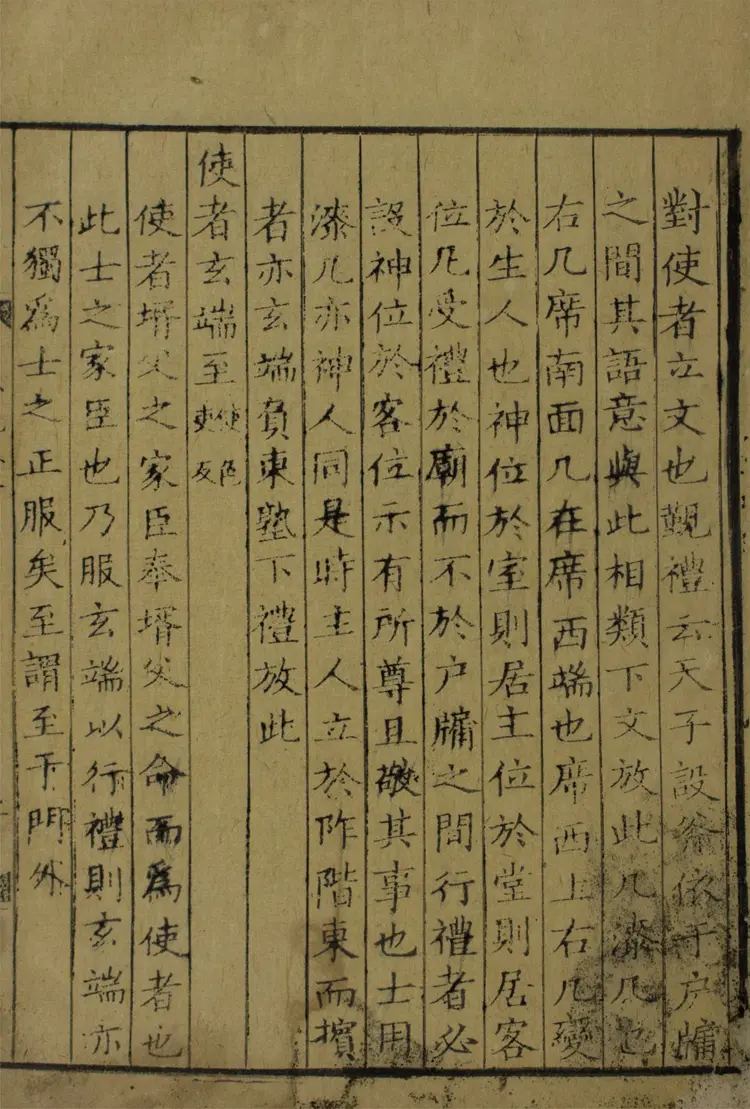 對使者立文也覲禮云天子設斧依于户牖
之間其語意與此相類下文放此几漆几也
右几席南面几在席西端也席西上右几變
於生人也神位於室則居主位於堂則居客
位凡受禮於廟而不於户牖之間行禮者必
設神位於客位示有所尊且敬其事也士用
漆几亦神人同是時主人立於阼階東而擯
者亦玄端負東塾下禮放此
使者玄端至使色吏反
使者壻父之家臣奉壻父之命而爲使者也
此士之家臣也乃服玄端以行禮則玄端亦
不獨爲士之正服矣至謂至于門外